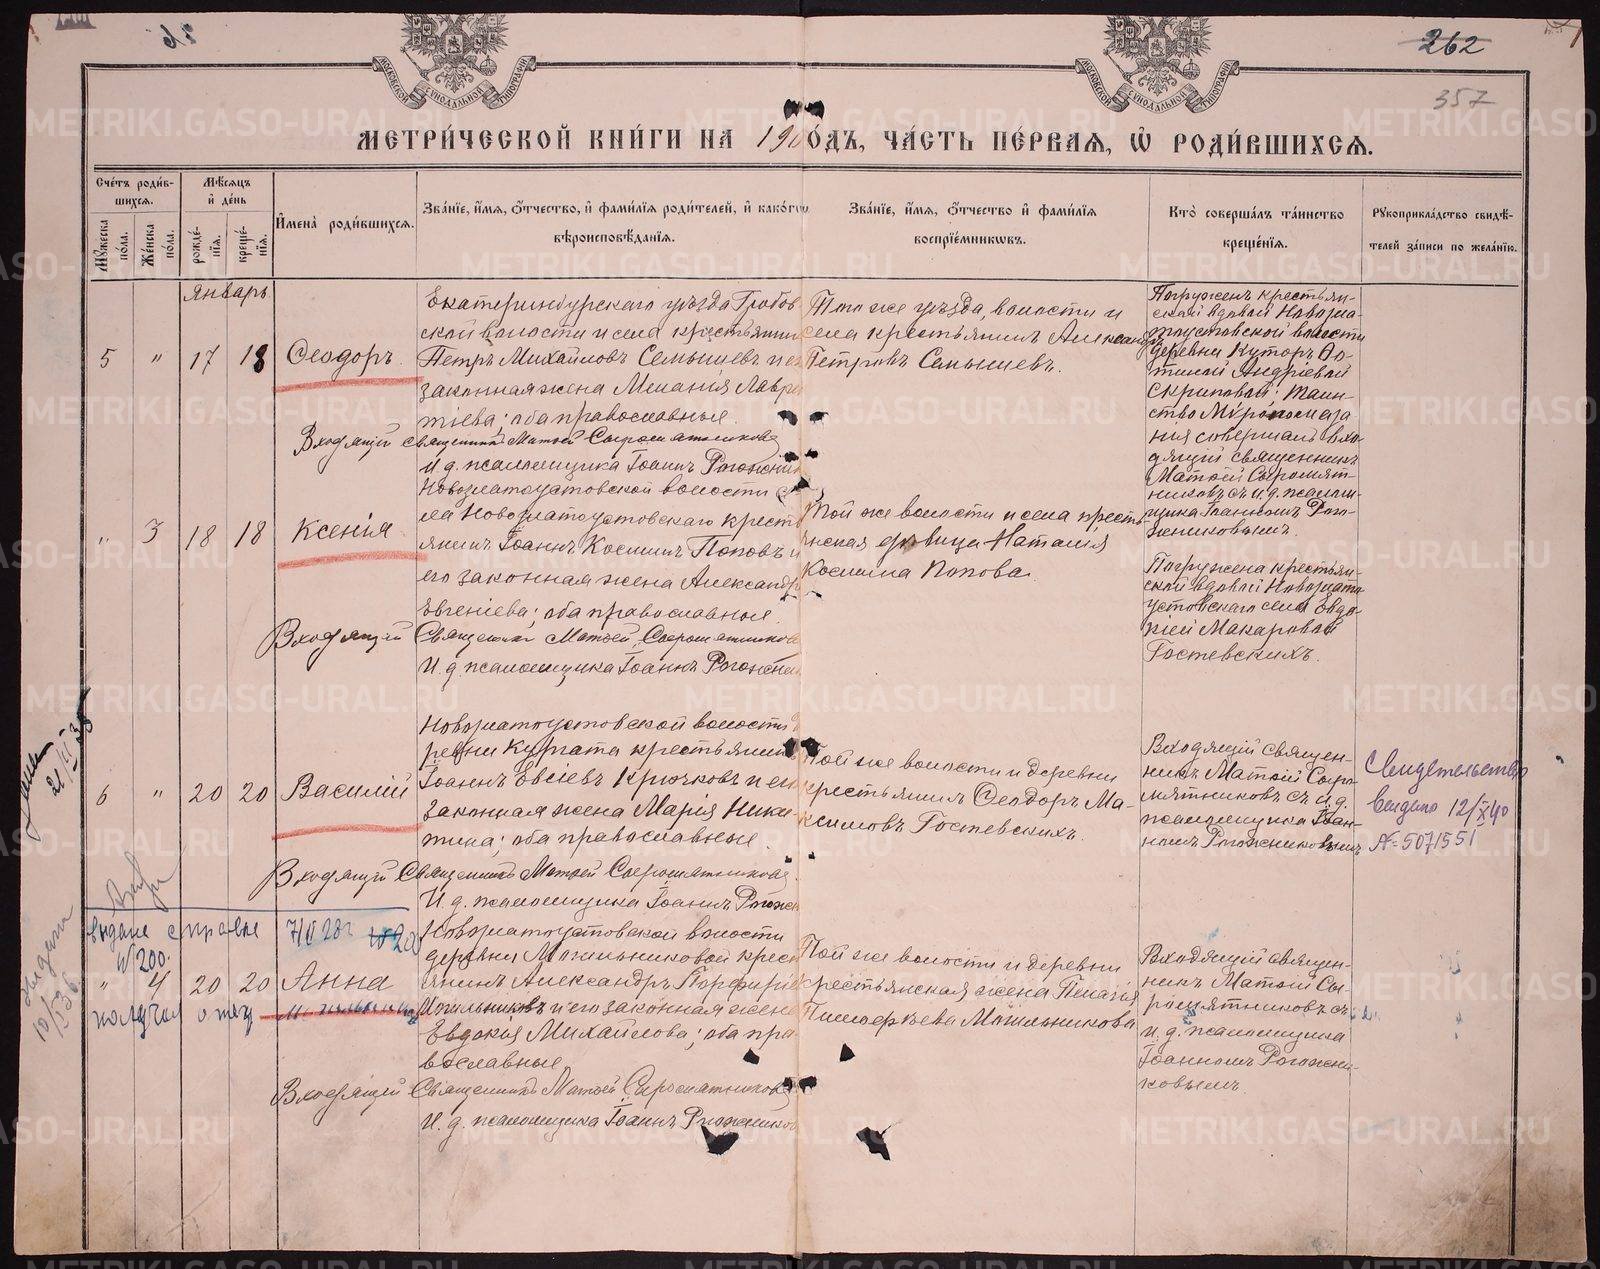 262
357
МОСКОВСКОЙ СѴНОДАЛЬНОЙ ТИПОГРАФІИ
МОСКОВСКОЙ СѴНОДАЛЬНОЙ ТИПОГРАФІИ
МЕТРИ́ЧЕСКОЙ КНИ́ГИ НА 190 ГО́ДЪ, ЧА́СТЬ ПЕ́РВАѦ, Ѡ҆ РОДИ́ВШИХСѦ.
Счетъ роди́вшихсѧ.
Мꙋжеска по́ла.
Же́нска по́ла.
Мѣ́сѧцъ и҆ де́нь
рожде́нїѧ.
креще́нїѧ.
И҆мена̀ роди́вшихсѧ.
Зва́нїе, и҆́мѧ, ѻ҆́тчество, и҆ фами́лїѧ роди́телей, и҆ како́гѡ
вѣроисповѣ́данїѧ.
Зва́нїе, и҆́мѧ, ѻ҆́тчество и҆ фами́лїѧ
воспрїе́мникѡвъ.
Кто̀ соверша́лъ та́инство
креще́нїѧ.
Рꙋкоприкла́дство свидѣ́телей за́писи по жела́нїю.
январь
5 " 17 18 Ѳеодоръ
Екатеринбургскаго уѣзда Гробов
ской волости и села крестьянин
Петръ Михайловъ Семышевъ и его
законная жена Меланія Лавре
тіева; оба православные.
Входящій священникъ Матѳей Сыромятников
И. д. псаломщика Іоаннъ Рогожник
Того же уѣзда, волости и
села крестьянинъ Александръ
Петровъ Семышевъ.
Погруженъ крестьян-
ской вдовой Новозла-
тоустовской волости
деревни Куторъ Фо-
тиной Андріевой
Скриповой; таин-
ство Мѵропомаза
нія совершалъ вхо-
дящій священникъ
Матѳей Сыромят-
никовъ съ и.д. псалом-
щика Іоанномъ Рого-
жниковымъ.
" 3 18 18 Ксенія
Новозлатоустовской волости се
ла Новозлатоустовскаго кресть
янинъ Іоаннъ Косминъ Поповъ и
его законная жена Александр
Евгеніева; оба православные.
Входящій Священникъ Матѳей Сыромятников
И. д. псаломщика Іоаннъ Рогожник
Той же волости и села кресть-
янская дѣвица Наталія
Космина Попова.
Погружена крестьян-
ской вдовой Новозлато
устовскаго села Евдо-
кіей Макаровой
Гостевскихъ.
6 " 20 20 Василій
Новозлатоустовской волости де
ревни Кургата крестьянин
Іоаннъ Евсіевъ Крючковъ и его
законная жена Марія Ники-
тина; оба православные.
Входящій Священникъ Матѳей Сыромятников
И. д. псаломщика Іоаннъ Рогожн
Той же волости и деревни
крестьянинъ Ѳеодоръ Ма-
ксимовъ Гостевскихъ.
Входящій священ-
никъ Матѳей Сыро
мятниковъ съ и.д.
псаломщика Іоан-
номъ Рогожниковымъ
Свидетельство
выдано 12/X 40
№ 5071551
выдане справке 7/VI 28г
№ 200.
" 4 20 20 Анна
получил отец
Новозлатоустовской волости
деревни Могильниковой крест
янинъ Александръ Порфирі
Могильниковъ и его законная жена
Евдокія Михайлова; оба пра
вославные
Входящій Священникъ Матѳей Сыромятников
И. д. псаломщика Іоаннъ Рогожников
Той же волости и деревни
крестьянская жена Пелагія
Тимофѣева Могильникова
Входящій священ-
никъ Матѳей Сы-
ромятниковъ съ
и.д. псаломщика
Іоанномъ Рогожни-
ковымъ.
Выдан
10/